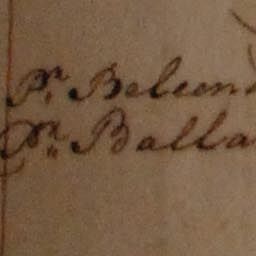 Pr. Belcen
Pr. Balla